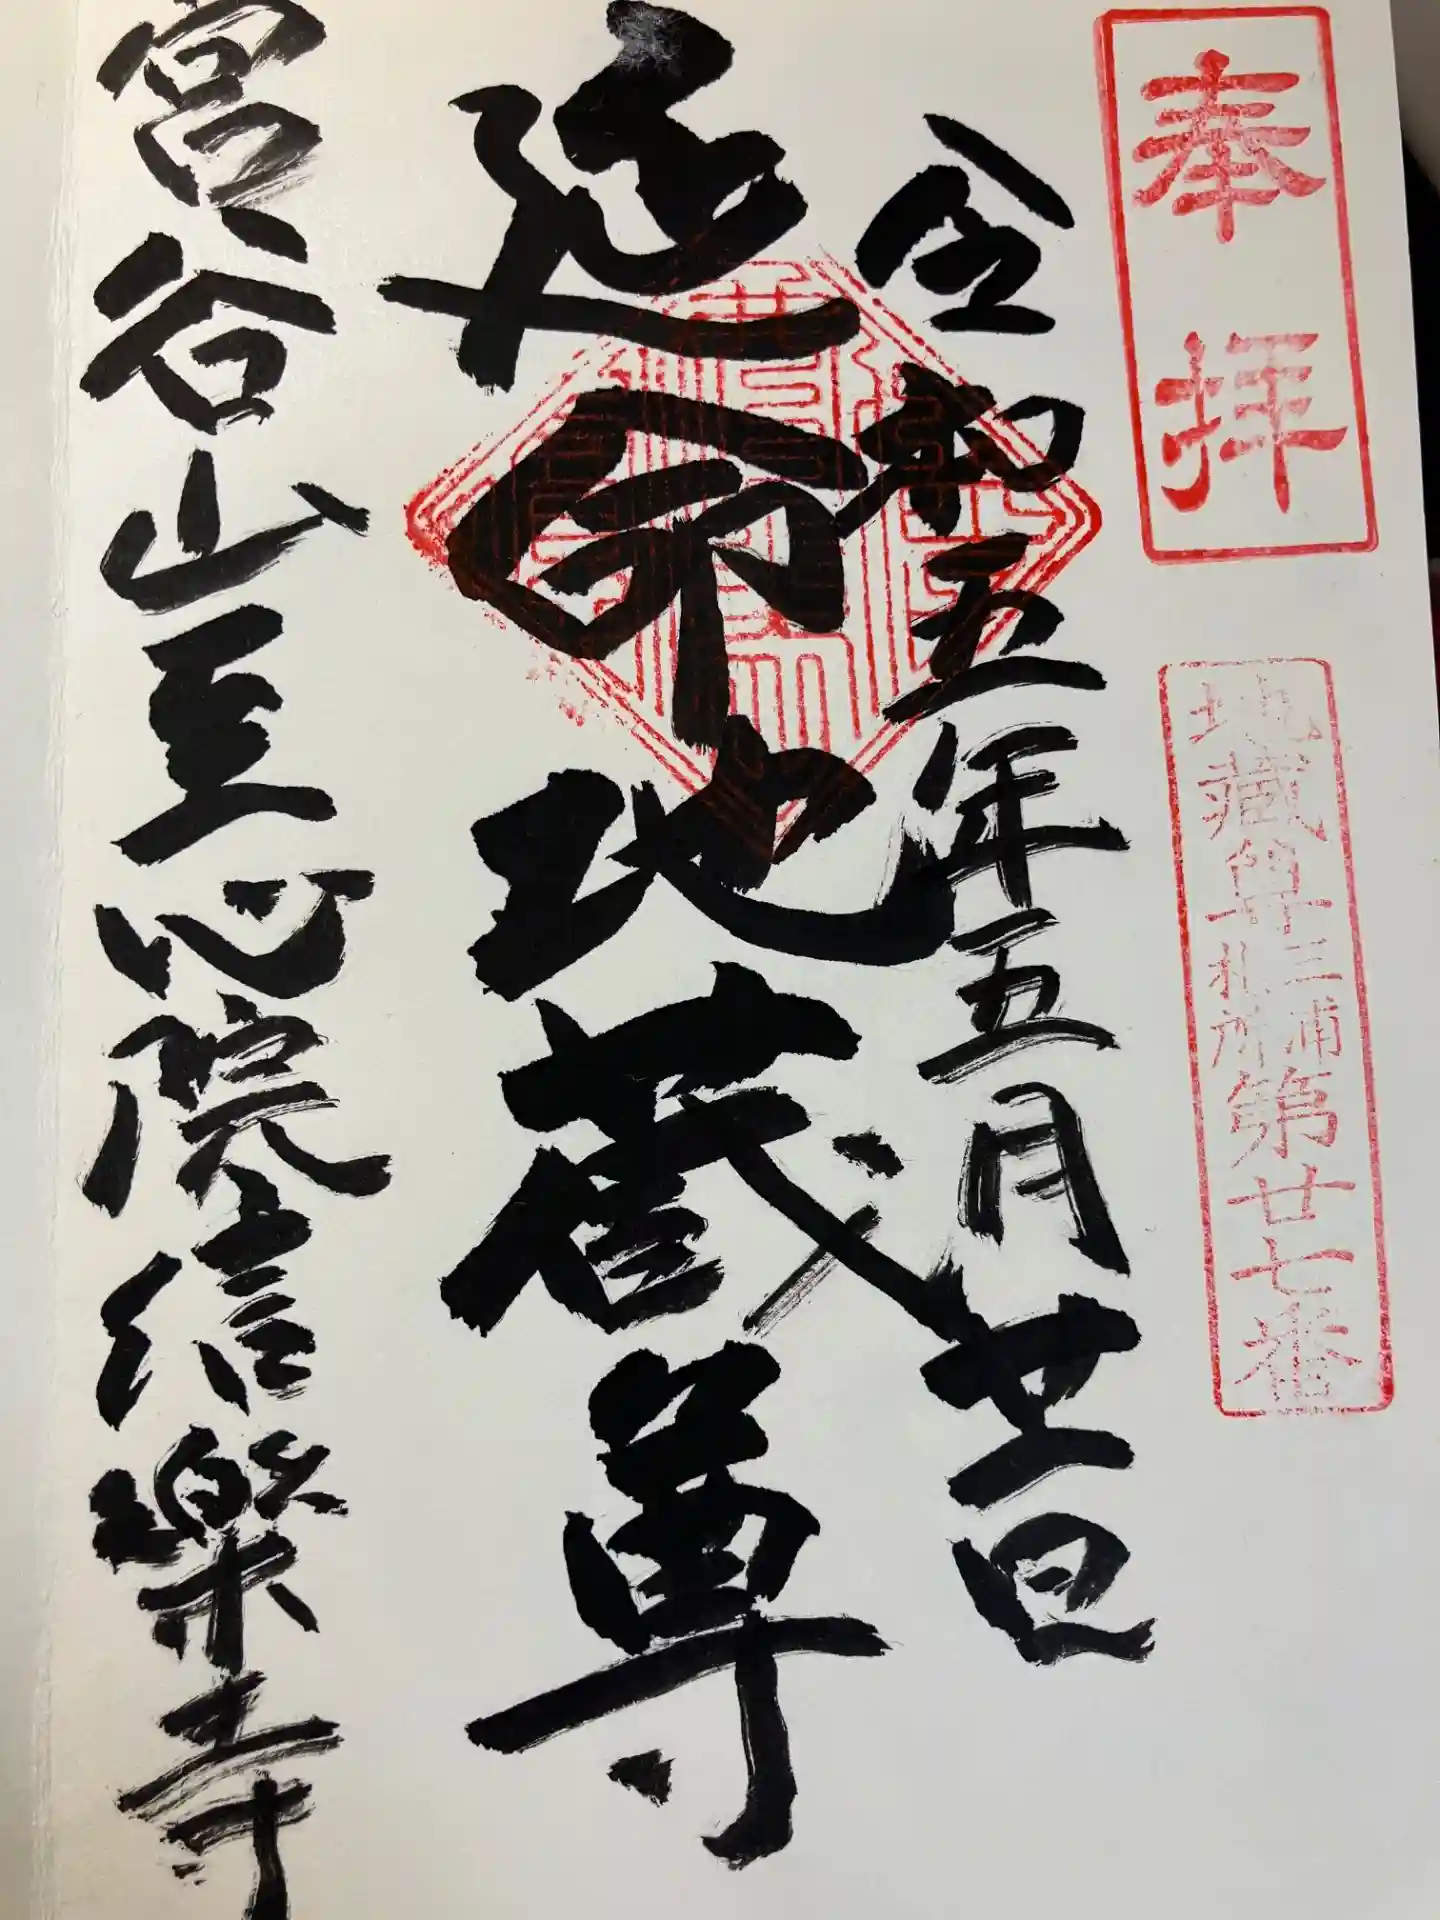 奉拝
地蔵尊三浦札所第廿七番
令和五年五月廿日
延命地蔵尊
宮谷山至心院信樂寺